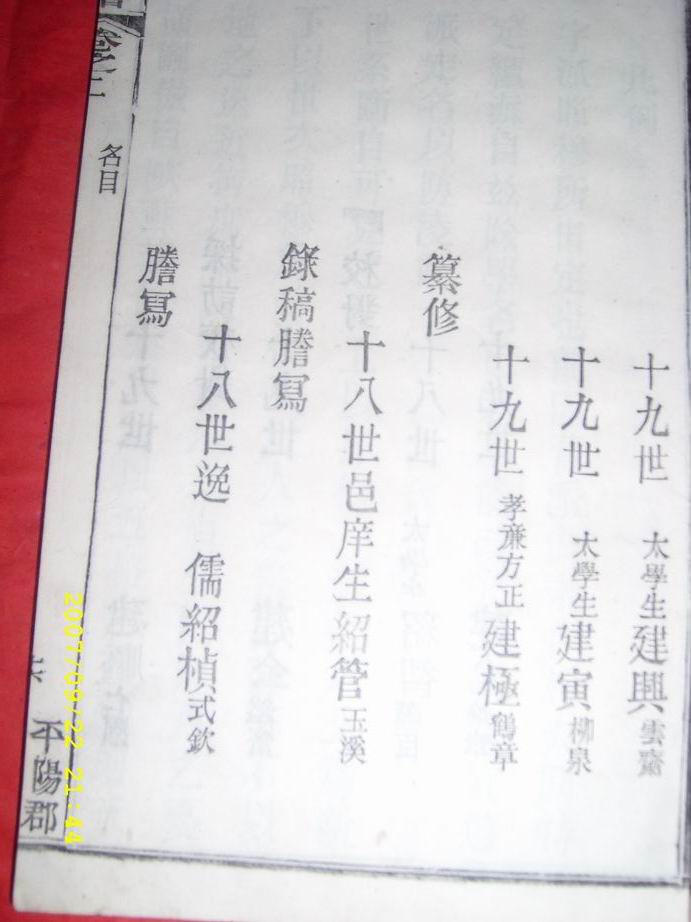 十九世 太學生建興雲齋
十九世 太學生建寅柳泉
十九世 孝廉方正建極鶴章
纂修
十八世邑庠生紹管玉溪
錄稿謄寫
十八世逸 儒紹楨式欽
謄寫
卷之二
名目
平陽郡
2007/09/22 21:44